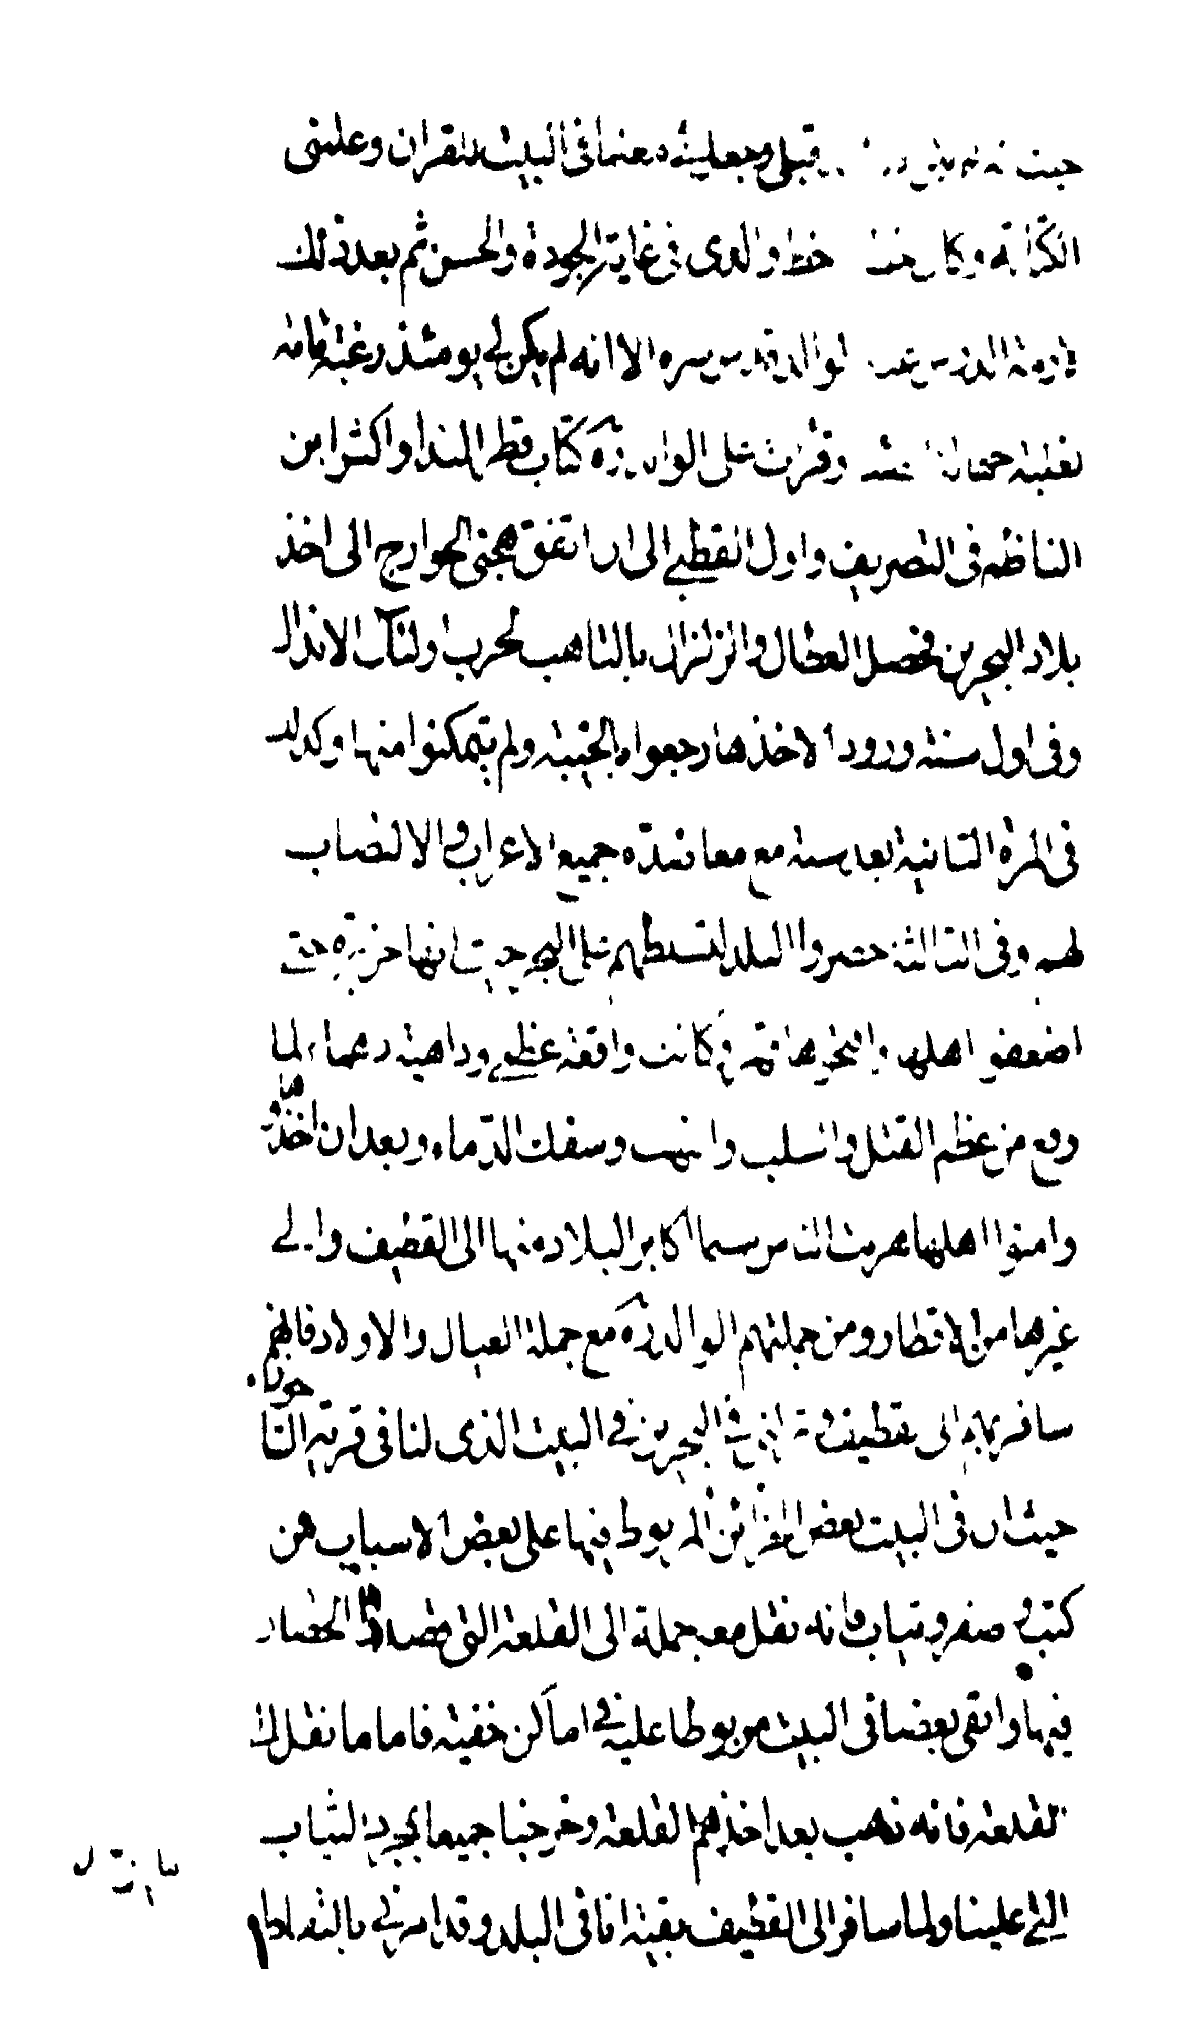 حيث قبلي وجعلته معلما في البيت للقران وعلمني
الكتابة وكان خط والدي في غاية الجودة والحسن ثم بعد ذلك
الوالد قدس سره الا انه لم يكن لي يومئذ رغبة تامة
وقرات على الوالد ره كتاب قطر الندا واكثر ابن
الناظم في التصريف واول القطبي الى ان اتفق مجئ الخوارج الى اخذ
بلاد البحرين فحصل العطال والزلزال بالتاهب لحرب اولئك الانذال
وفي اول سنة وردوا لاخذها رجعوا بالخيبة ولم يتمكنوا منها وكذلك
في المرة الثانية بعد سنة مع معاضدة جميع الاعراب والانصاب
لهم وفي الثالثة حصروا البلد لتسلطهم على البحر حيث انها جزيرة حتى
اضعفوا اهلها وكانت واقعة عظمى وداهية دهماء لما
وقع من عظم القتل والسلب والنهب وسفك الدماء وبعد ان اخذوها
وامنوا اهلها هربت الناس سيما اكابر البلاد منها الى القطيف والى
غيرها من الاقطار ومن جملتهم الوالد ره مع جملة العيال والاولاد فانهم
سافر بهم الى القطيف في البحرين في البيت الذي لنا في قرية الشاخورة
حيث ان في البيت بعض الخزائن المربوط فيها على بعض الاسباب من
كتب و صفر و ثياب فانه نقل معه جملة الى القلعة التي قصدوا الحصار
فيها وابقى بعضا في البيت مربوطا عليه في اماكن خفية فاما ما نقل الى
القلعة فانه نهب بعد اخذهم القلعة وخرجنا جميعا بمجرد الثياب
التي علينا ولما سافر الى القطيف بقيت انا في البلد وقد امرني بالتقاط